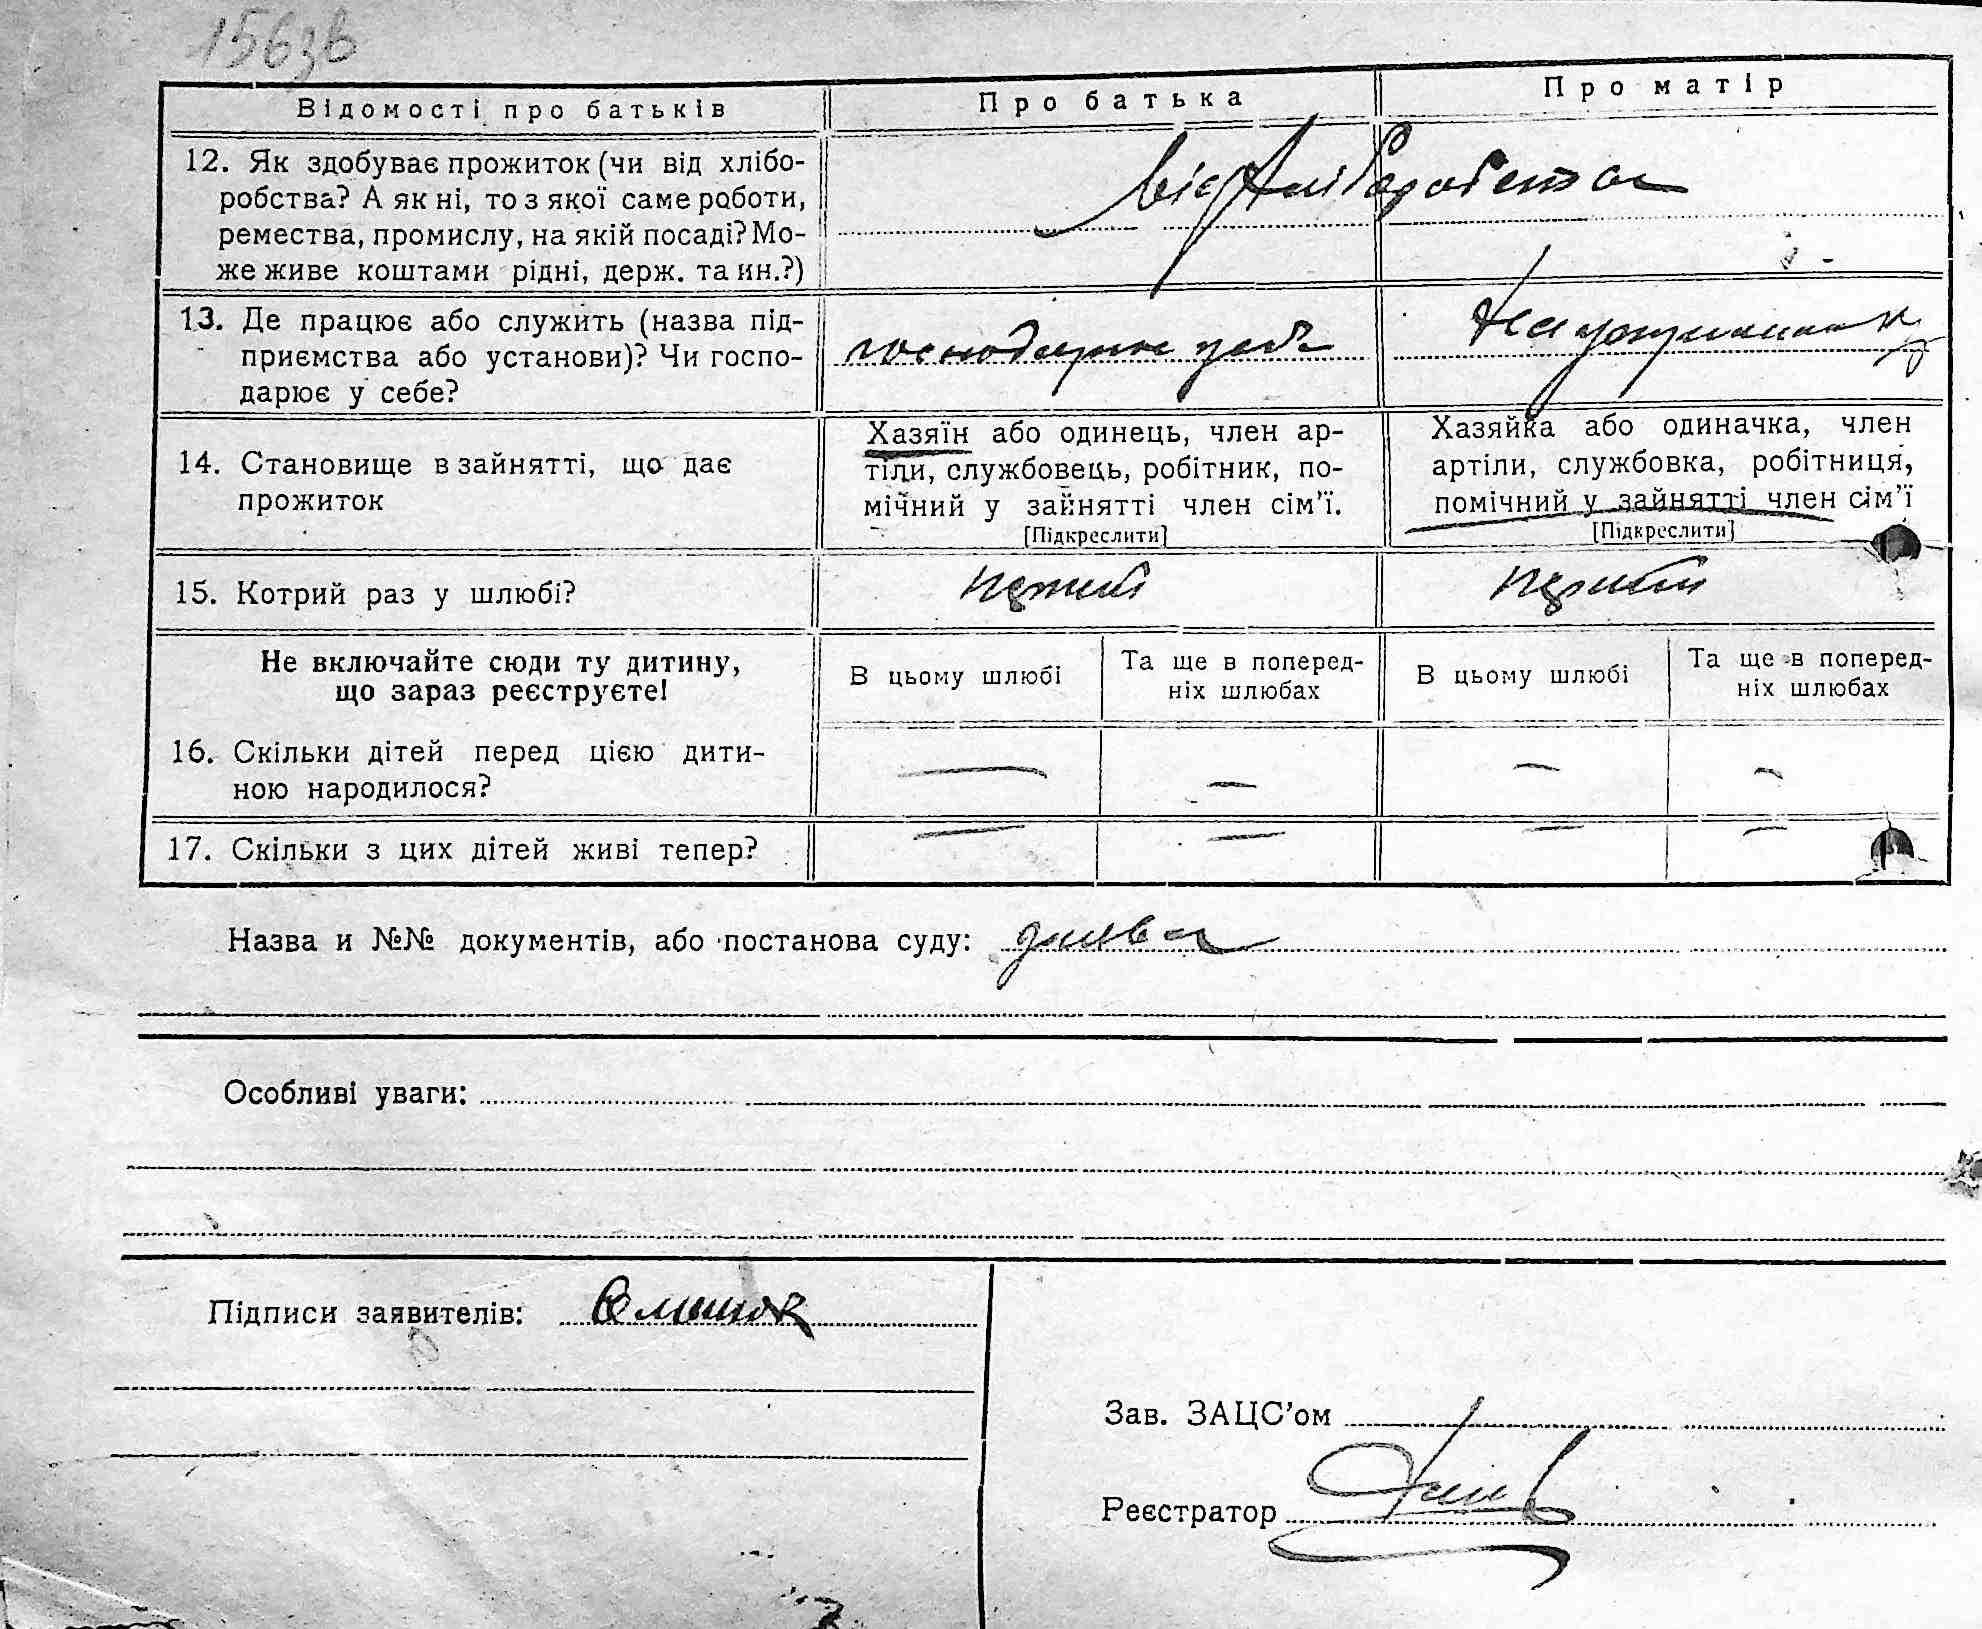 1563в
Відомості про батьків
Про батька
Про матір
12. Як здобуває прожиток (чи від хлібо-
робства? А як ні, то з якої саме роботи,
ремества, промислу, на якій посаді? Мо-
же живе коштами рідні, держ. та ин.?)
від хліборобства
13. Де працює або служить (назва під-
приємства або установи)? Чи госпо-
дарює у себе?
господарює у себе
На утриманні
14. Становище в зайнятті, що дає
прожиток
Хазяїн або одинець, член ар-
тіли, службовець, робітник, по-
мічний у зайнятті член сім'ї.
[Підкреслити]
Хазяйка або одиначка, член
артіли, службовка, робітниця,
помічний у зайнятті член сім'ї
[Підкреслити]
15. Котрий раз у шлюбі?
перший
перший
Не включайте сюди ту дитину,
що зараз реєструєте!
В цьому шлюбі
Та ще в поперед-
ніх шлюбах
В цьому шлюбі
Та ще в поперед-
ніх шлюбах
16. Скільки дітей перед цією дити-
ною народилося?
— — — —
17. Скільки з цих дітей живі тепер?
— — — —
Назва и №№ документів, або постанова суду:
Особливі уваги:
Підписи заявителів:
Зав. ЗАЦС'ом
Реєстратор